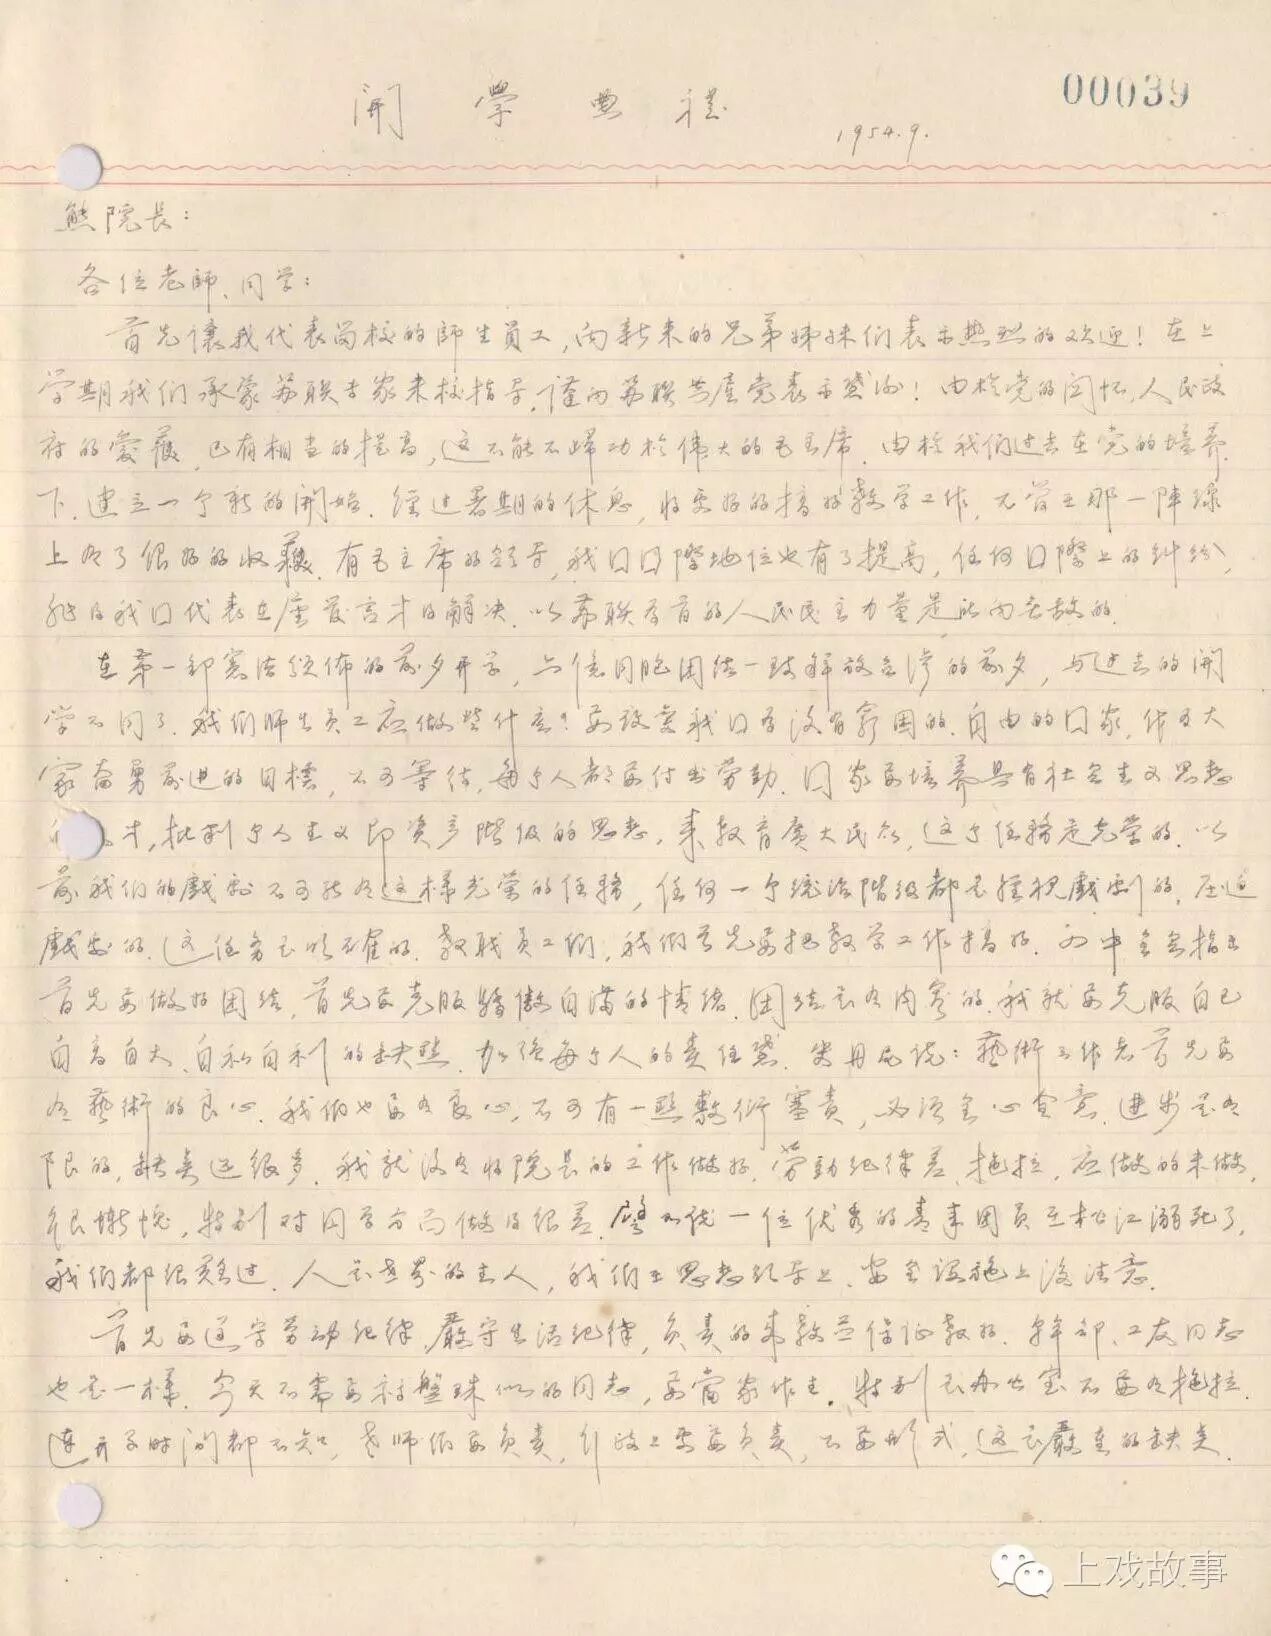 開學典禮
00039
1954.9.
熊院長：
各位老師、同学：
首先讓我代表尚校的師生員工，向新来的兄弟姊妹们表示热烈的欢迎！在上
学期我们承蒙苏联专家来校指导，谨向苏联共產党表示感谢！由於党的関怀，人民政
府的愛護，已有相当的提高，这不能不歸功於伟大的毛主席。由於我们过去在党的培养
下，建立一个新的開始。经过暑期的休息，将更好的搞好教学工作，不管在那一陣線
上有了很好的收穫。有毛主席的领导，我囗囗際地位也有了提高，任何囗際上的纠纷，
我囗代表在座發言才得解决。以苏联为首的人民民主力量是所向无敌的。
在第一部宪法颁佈的前夕开学，与億同胞团结一致解放台湾的前夕，与过去的開
学不同了。我们师生员工应做些什么？要改变我囗为没有窮困的、自由的囗家，作为大
家奋勇前进的目標，不可等待，每个人都要付出劳動。囗家要培养具有社会主义思想
才，批判个人主义即资产階级的思想，来教育廣大民众，这个任務是光荣的。以
前我们的戲劇不可能有这樣光荣的任務，任何一个统治階级都是轻视戲劇的，压迫
戲劇的。这任务是明確的。教职员工们，我们首先要把教学工作搞好。四中全会指出
首先要做好团结，首先要克服驕傲自满的情绪。团结是有内容的，我就要克服自己
自高自大、自私自利的缺點。加强每个人的责任感。史丹尼说：藝術工作者首先要
有藝術的良心。我们也要有良心，不可有一點敷衍塞责，必须全心全意。进步是有
限的，缺点还很多。我就没有将院長的工作做好，劳動纪律差，拖拉，应做的未做，
很慚愧，特别对同学方面做得很差。譬如说一位优秀的青年团员在松江溺死了，
我们都很难过。人是世界的主人，我们在思想领导上、安全设施上没注意。
首先要遵守劳动纪律，嚴守生活纪律，负责的来教並保证教好。幹部、工友同志
也是一樣。今天不需要算盤珠似的同志，要當家作主。特别是办公室不要有拖拉。
連开学时间都不知，老师们要负责，行政上更要负责，不要形式，这是嚴重的缺点。
上戏故事